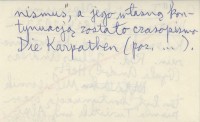 nismus", a jego własną kon-
tynuacją zostało czasopismo
Die Karpathen (por. ...).